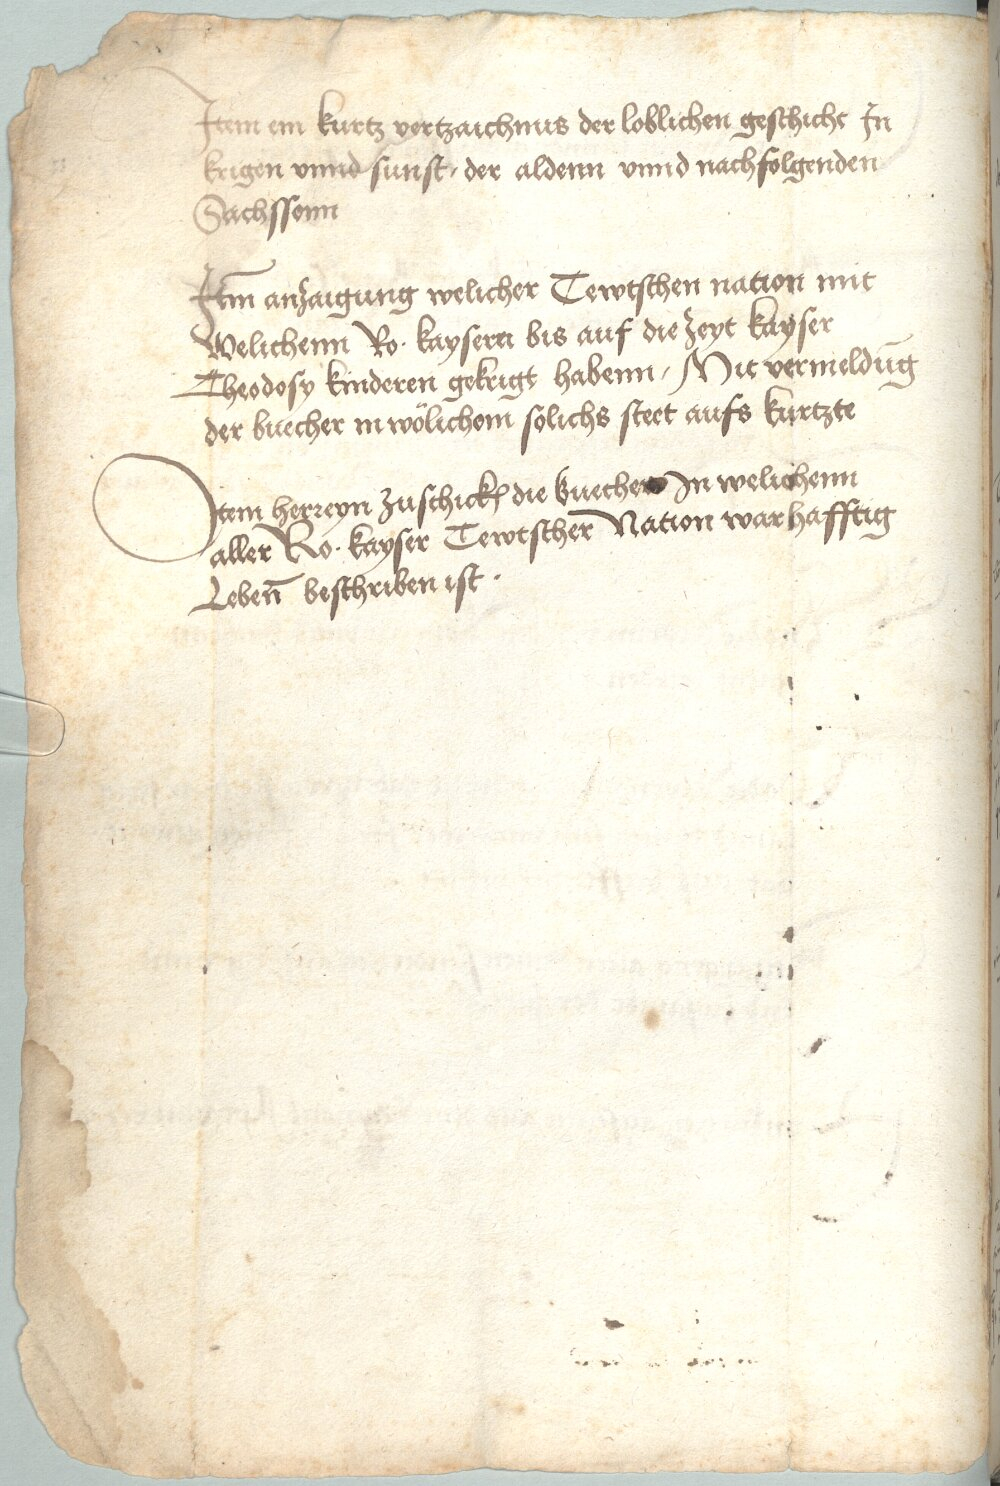 Item ein kurtz vertzaichnus der loblichen geschicht In
krigen vnnd sunst, der aldenn vnnd nachfolgenden
Sachssenn
Itm̄ anzaigung welicher Tewtschen nation mit
Welichenn Ro. kaysern bis auf die zeyt kayser
Theodosy kinderen gekrigt habenn, Mit vermeldūg
der buecher in wölichem solichs stert aufs kurtzte
Item herreyn zuschick die buecher In welichenn
aller Ro. kayser Tewtscher Nation warhafftig
Leben̄ beschriben ist.